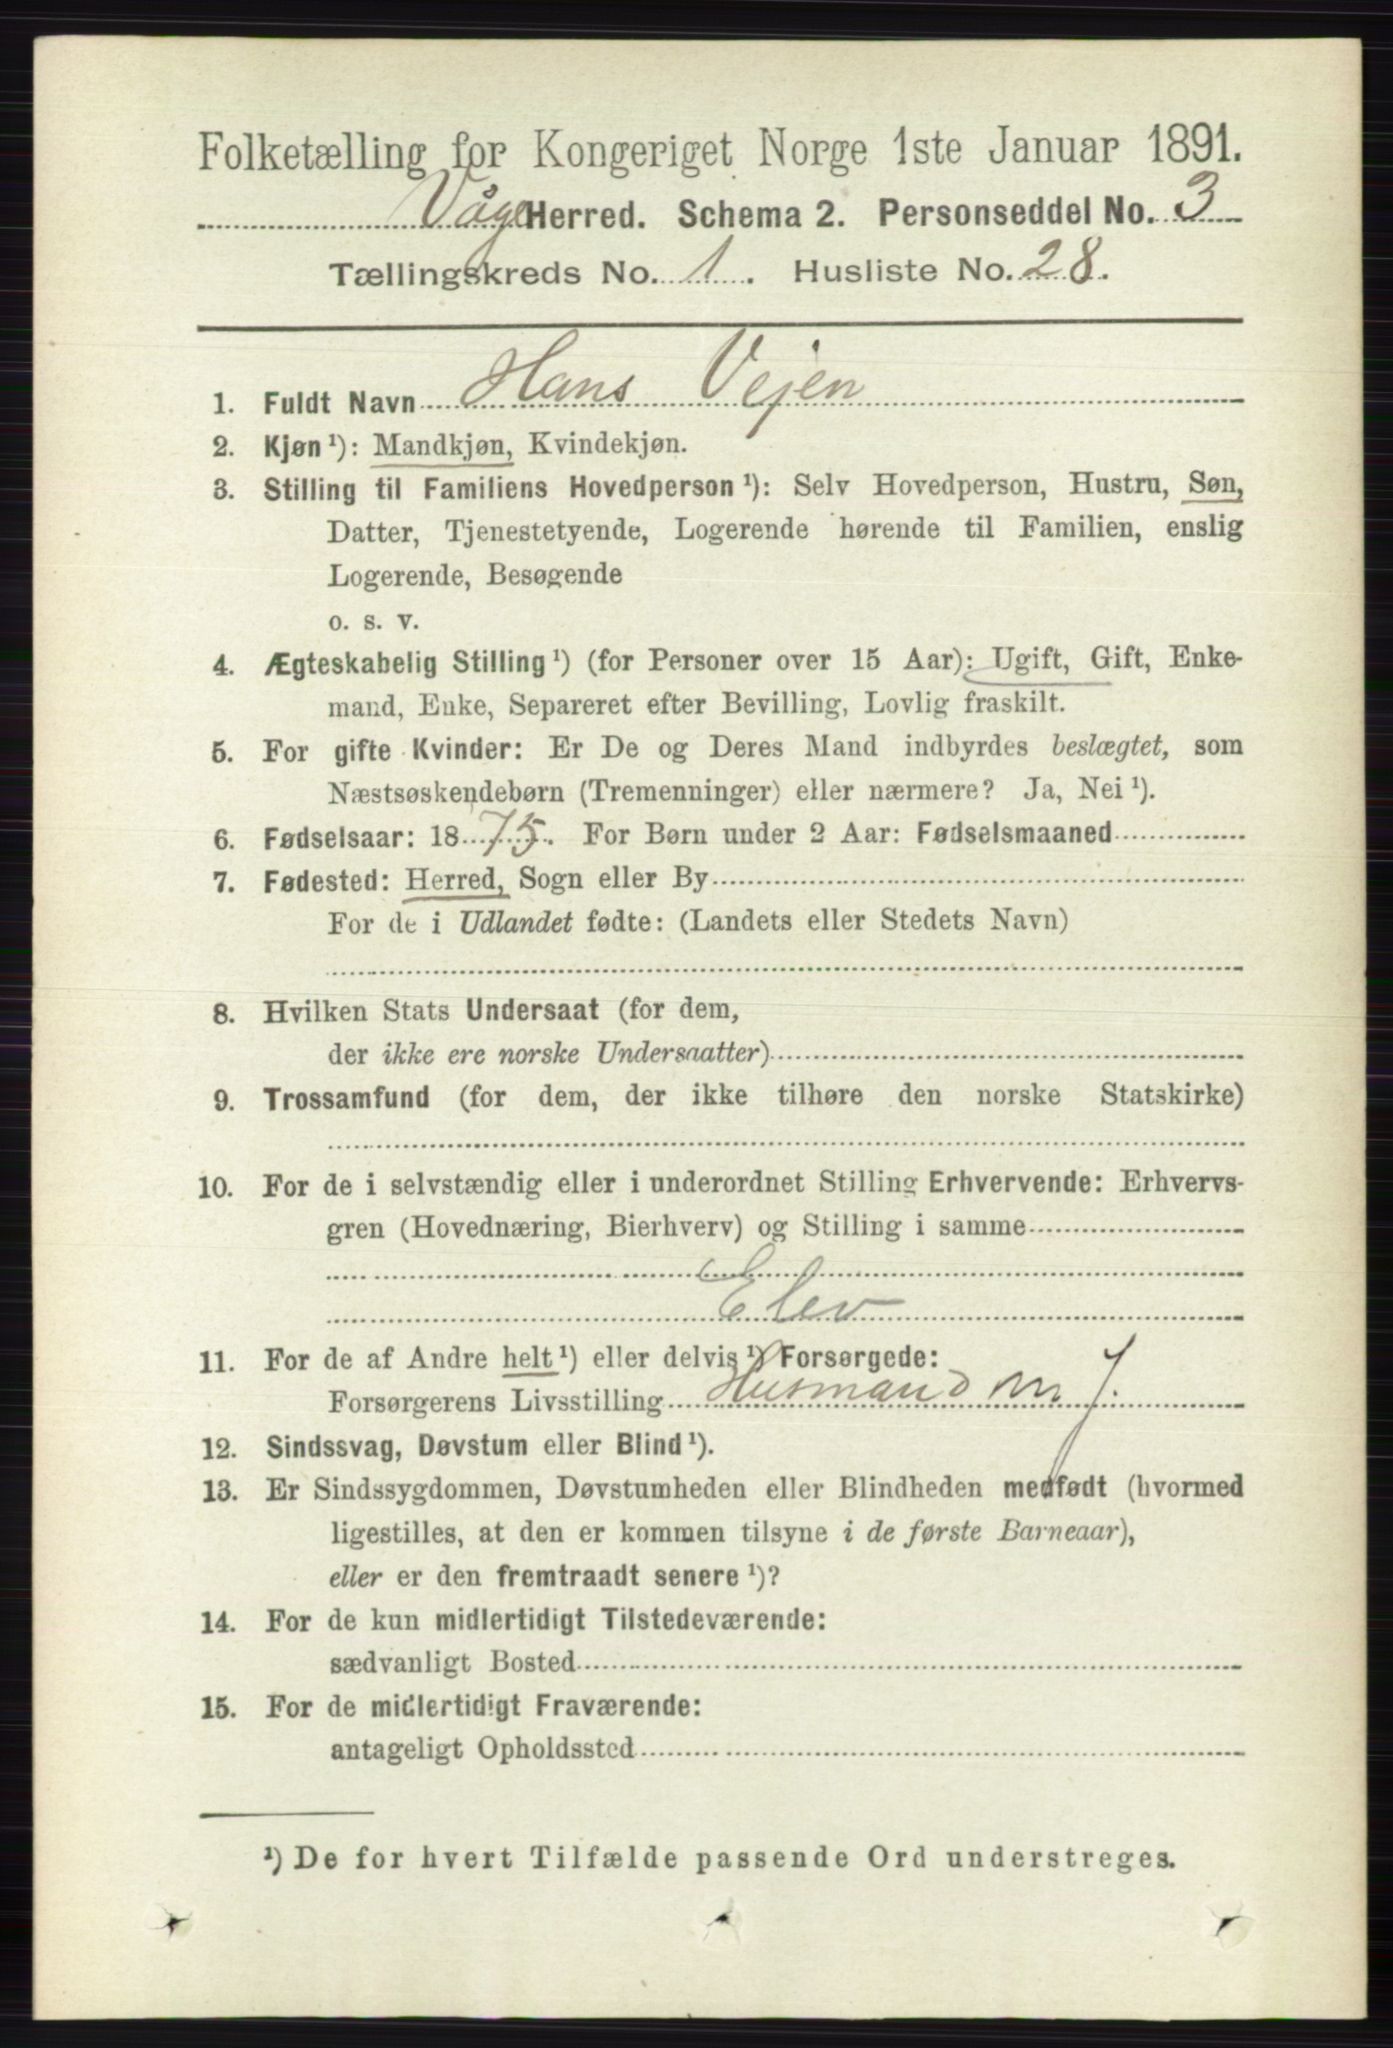 Folketælling for Kongeriget Norge 1ste Januar 1891.
Våge Herred. Schema 2. Personseddel No. 3
Tællingskreds No. 1. Husliste No. 28.
1. Fuldt Navn Hans Vejen
2. Kjøn¹): Mandkjøn, Kvindekjøn.
3. Stilling til Familiens Hovedperson¹): Selv Hovedperson, Hustru, Søn,
Datter, Tjenestetyende, Logerende hørende til Familien, enslig
Logerende, Besøgende
o. s. v.
4. Ægteskabelig Stilling¹) (for Personer over 15 Aar): Ugift, Gift, Enke-
mand, Enke, Separeret efter Bevilling, Lovlig fraskilt.
5. For gifte Kvinder: Er De og Deres Mand indbyrdes beslægtet, som
Næstsøskendebørn (Tremenninger) eller nærmere? Ja, Nei¹).
6. Fødselsaar: 1875. For Børn under 2 Aar: Fødselsmaaned
7. Fødested: Herred, Sogn eller By
For de i Udlandet fødte: (Landets eller Stedets Navn)
8. Hvilken Stats Undersaat (for dem,
der ikke ere norske Undersaatter)
9. Trossamfund (for dem, der ikke tilhøre den norske Statskirke)
10. For de i selvstændig eller i underordnet Stilling Erhvervende: Erhvervs-
gren (Hovednæring, Bierhverv) og Stilling i samme
Elev
11. For de af Andre helt¹) eller delvis¹) Forsørgede:
Forsørgerens Livsstilling Husmand m J.
12. Sindssvag, Døvstum eller Blind¹).
13. Er Sindssygdommen, Døvstumheden eller Blindheden medfødt (hvormed
ligestilles, at den er kommen tilsyne i de første Barneaar),
eller er den fremtraadt senere¹)?
14. For de kun midlertidigt Tilstedeværende:
sædvanligt Bosted
15. For de midlertidigt Fraværende:
antageligt Opholdssted
¹) De for hvert Tilfælde passende Ord understreges.